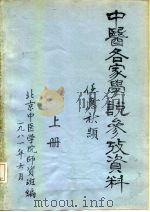 中醫各家學說參攷資料
任應秋題
上册
北京中医学院师资班编
一九八一年六月